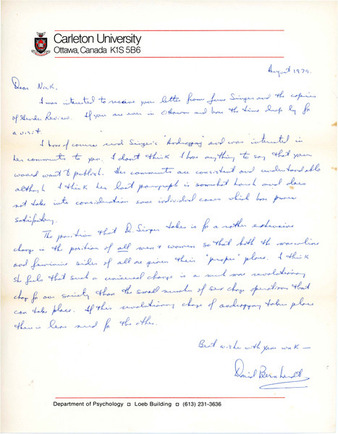 Carleton University
Ottawa, Canada K1S 5B6
August 1977.
Dear Nick,
I was interested to receive your letter from June Singer and the copies
of Gender Review. If you are ever in Ottawa and have the time drop by for
a visit.
I have of course read Singer's "Androgyny" and was interested in
her comments to you. I don't think I have anything to say that you
would want to publish. Her comments are consistent and understandable
although I think her last paragraph is somewhat harsh and does
not take into consideration some individual cases which have proven
satisfactory.
The position that Dr. Singer takes is for a rather extensive
change in the position of all men & women so that both the masculine
and feminine sides of all are given their "proper" place. I think
she feels that such a universal change is a much more revolutionary
change for our society than the small number of sex change operations that
can take place. If the revolutionary change of androgyny takes place
there is less need for the other.
Best wishes with your work —
David Bernhardt
Department of Psychology □ Loeb Building □ (613) 231-3636